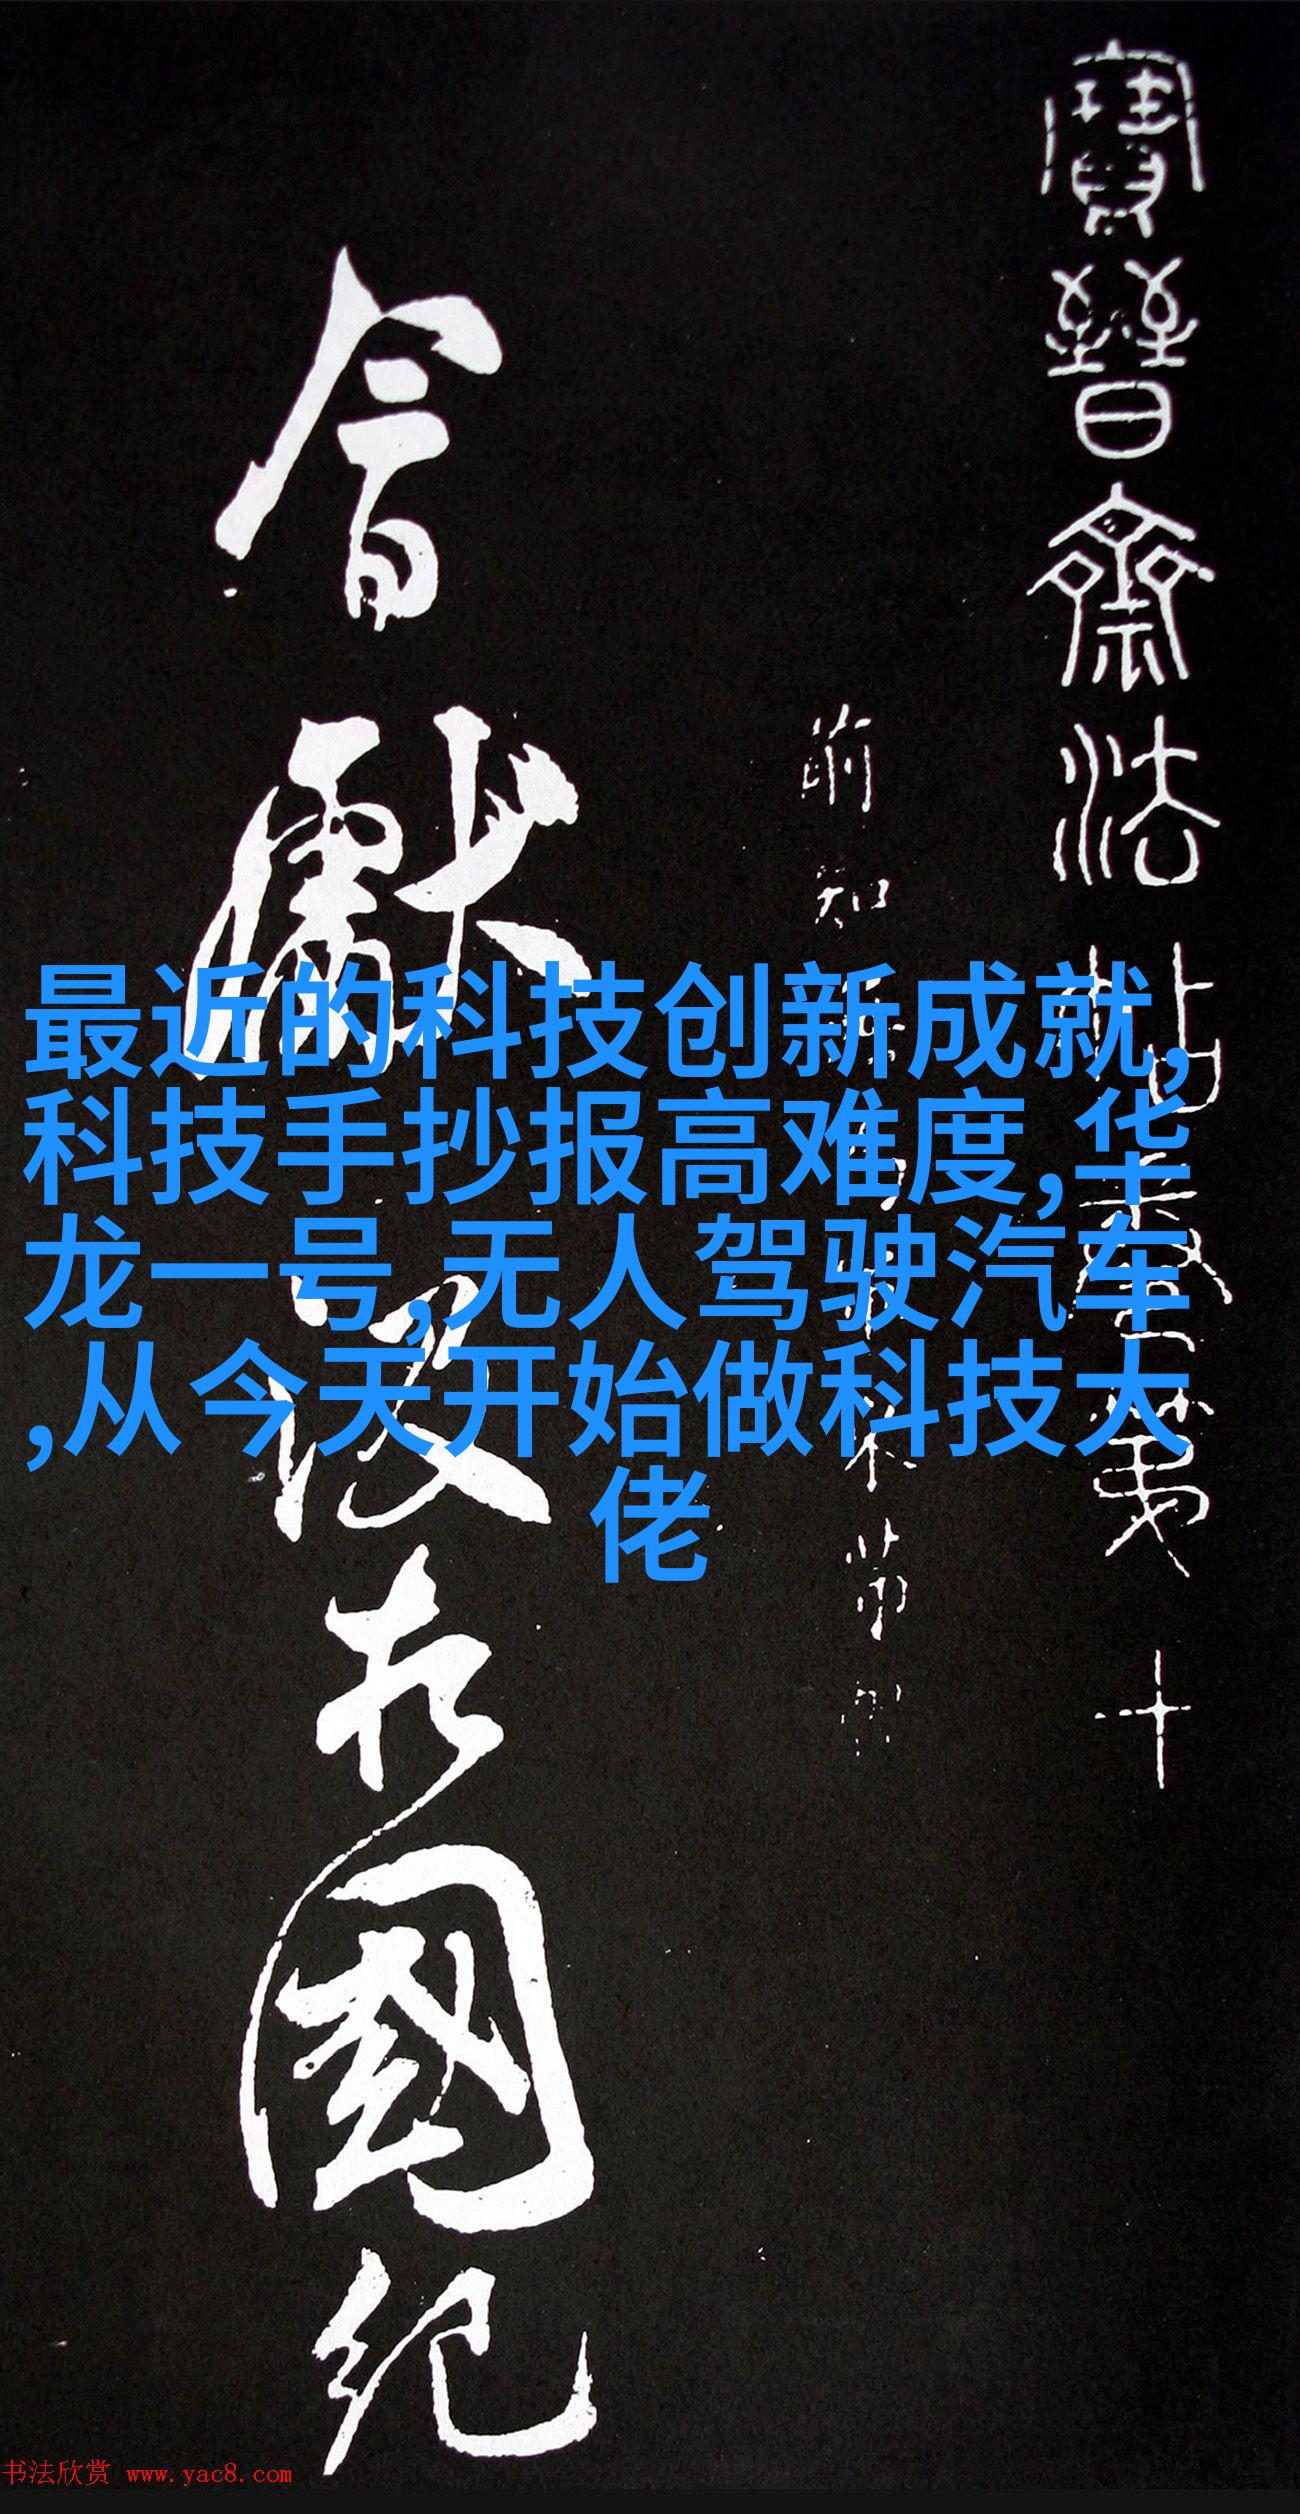 寶晉齋法帖卷第十
會獻汉表國纪
最近的科技创新成就,
科技手抄报高难度,华
龙一号,无人驾驶汽车
,从今天开始做科技大
佬
书法欣赏 www.yac8.com